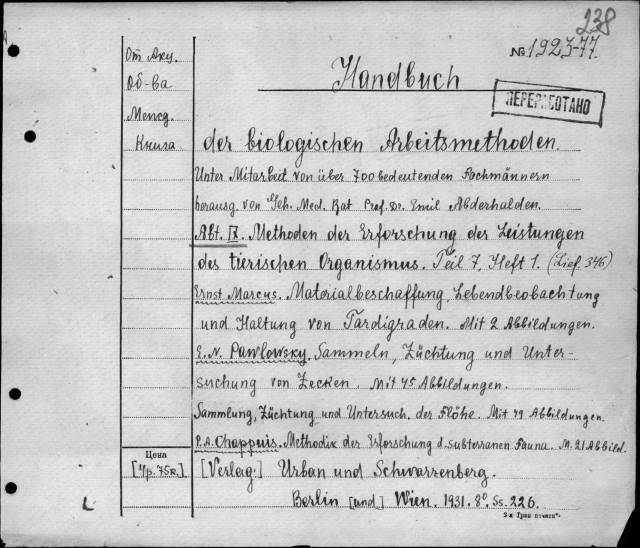 238
№ 1923-77.
От Акц.
Об-ва
Межд.
Книга
Handbuch
ПЕРЕРАБОТАНО
der biologischen Arbeitsmethoden.
Unter Mitarbeit von über 700 bedeutenden Fachmännern
herausg. von Geh. Med. Rat Prof. Dr. Emil Abderhalden.
Abt. IX. Methoden der Erforschung der Leistungen
des tierischen Organismus. Teil 7, Heft 1. (Lief. 346)
Ernst Marcus. Materialbeschaffung, Lebendbeobachtung
und Haltung von Tardigraden. Mit 2 Abbildungen.
E. N. Pawlowsky. Sammeln, Züchtung und Unter-
suchung von Zecken. Mit 45 Abbildungen.
Sammlung, Züchtung und Untersuch. der Flöhe. Mit 49 Abbildungen.
P. A. Chappuis. Methodik der Erforschung d. subterranen Fauna. M. 21 Abbild.
Цена
[4р. 75к.]
[Verlag:] Urban und Schwarzenberg.
Berlin [und] Wien. 1931. 8º. Ss. 226.
2-я Гран печати"